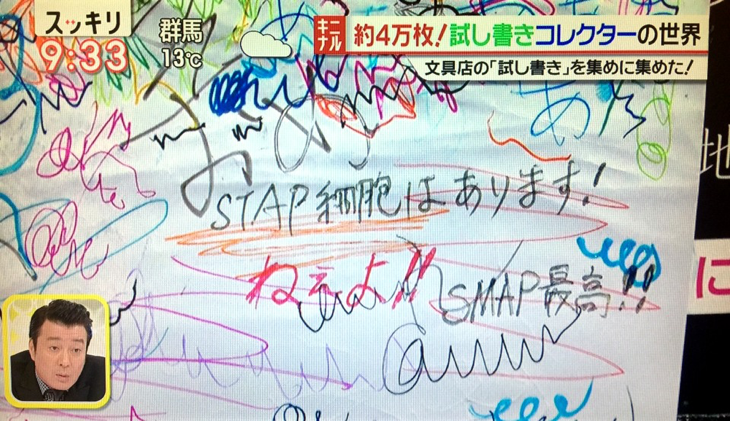 スッキリ
9:33
群馬
13℃
キナル
約4万枚!試し書きコレクターの世界
文具店の「試し書き」を集めに集めた!
あ
地
STAP細胞はあります!
ねぇよ!!
に
SMAP最高!!